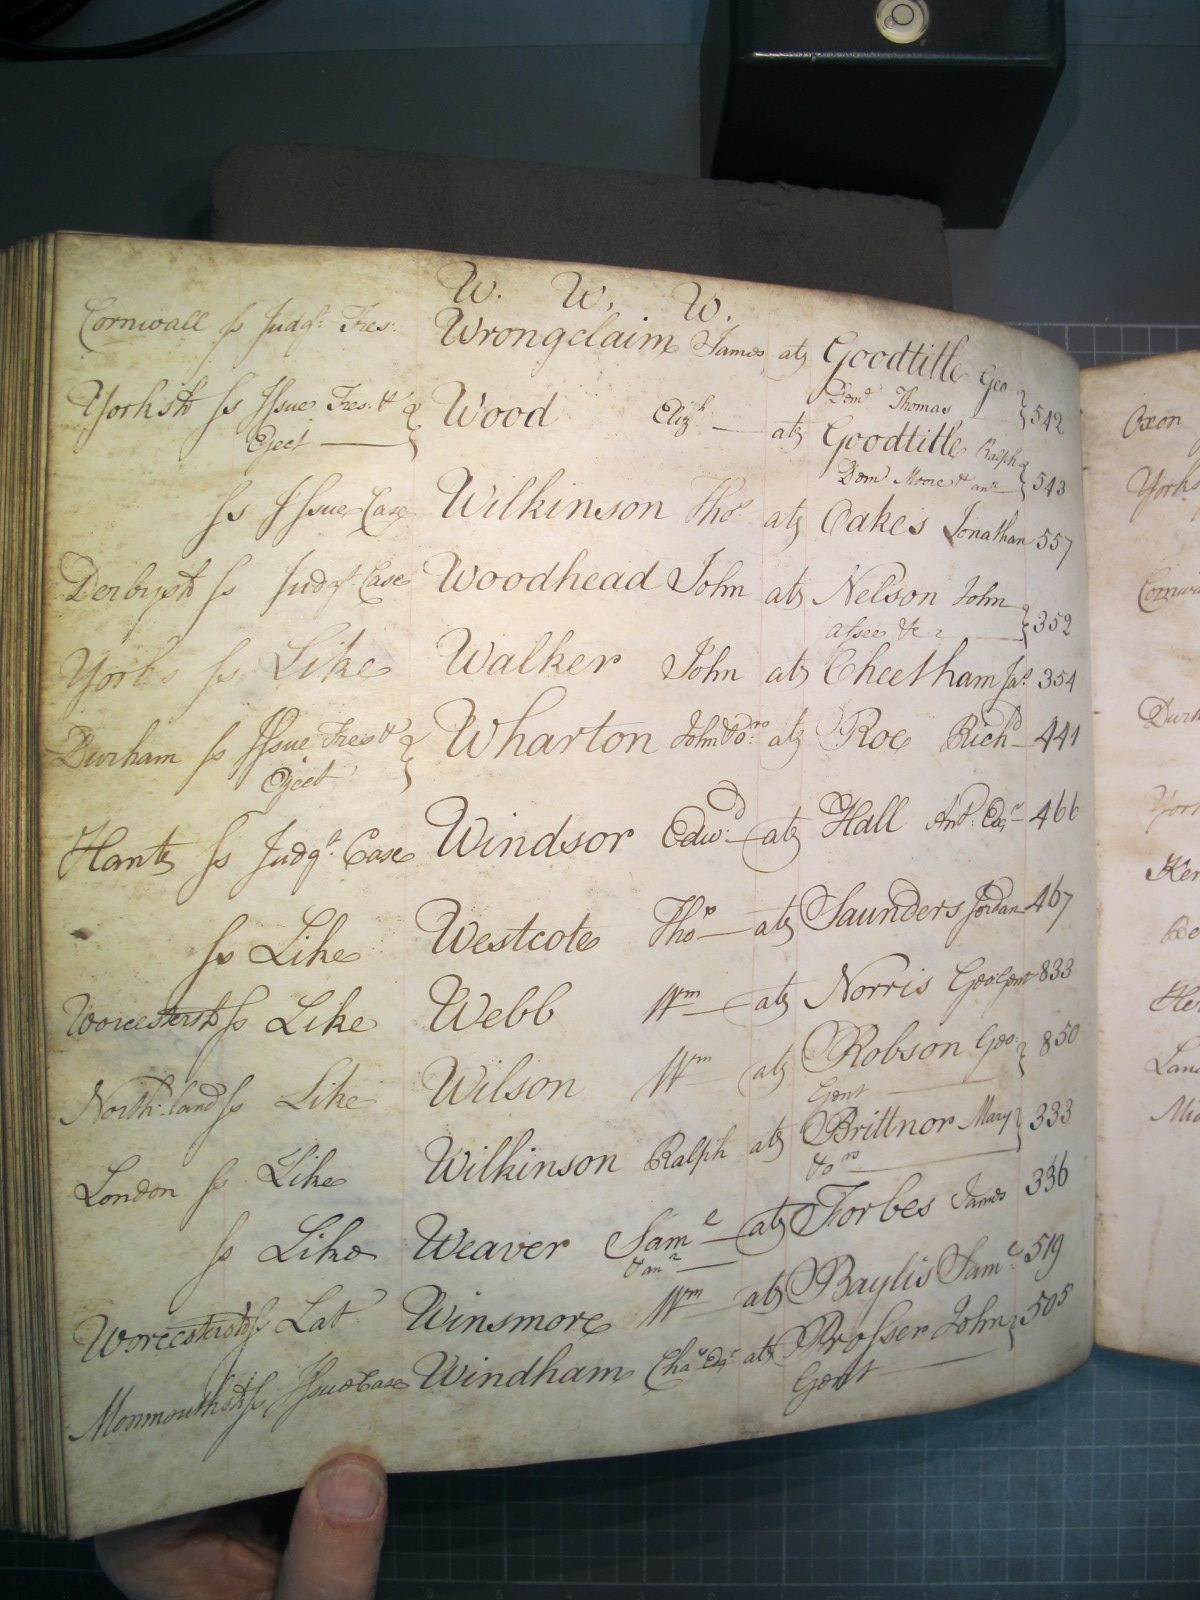 W. W. W.
Cornwall ss Judgt. Tres: Wrongclaim James ats Goodtitle Geo
Demd Thomas } 542
Yorksh ss Issue Tres. & } Wood Elizh — ats Goodtitle Ralph
Eject — Demd Moore & anr — } 543
ss Issue Case Wilkinson Thos ats Oakes Jonathan 557
Derbysh ss Judgt. Case Woodhead John ats Nelson John
assee &c — } 352
Yorks ss Like Walker John ats Cheetham Jas. 354
Durham ss Issue Tres & } Wharton John & ors ats Roe Richd — 441
Eject
Hants ss Judgt. Case Windsor Edwd. — ats Hall And. Esqr — 466
ss Like Westcote Thos — ats Saunders Jordan — 467
Worcestersh ss Like Webb Wm — ats Norris Geo: Gent 833
North:land ss Like Wilson Wm ats Robson Geo: } 850
Gent —
London ss Like Wilkinson Ralph ats Brittnor Mary } 333
& ors —
ss Like Weaver Saml — ats Forbes James 336
& anr —
Worcestersh ss Lat Winsmore Wm — ats Baylis Saml 519
Monmouthsh ss Issue Case Windham Chas Esqr ats Prosser John } 505
Gent —
Oxon
Yorks
Cornwa
Durh
York
Ken
Her
Lan
Mid